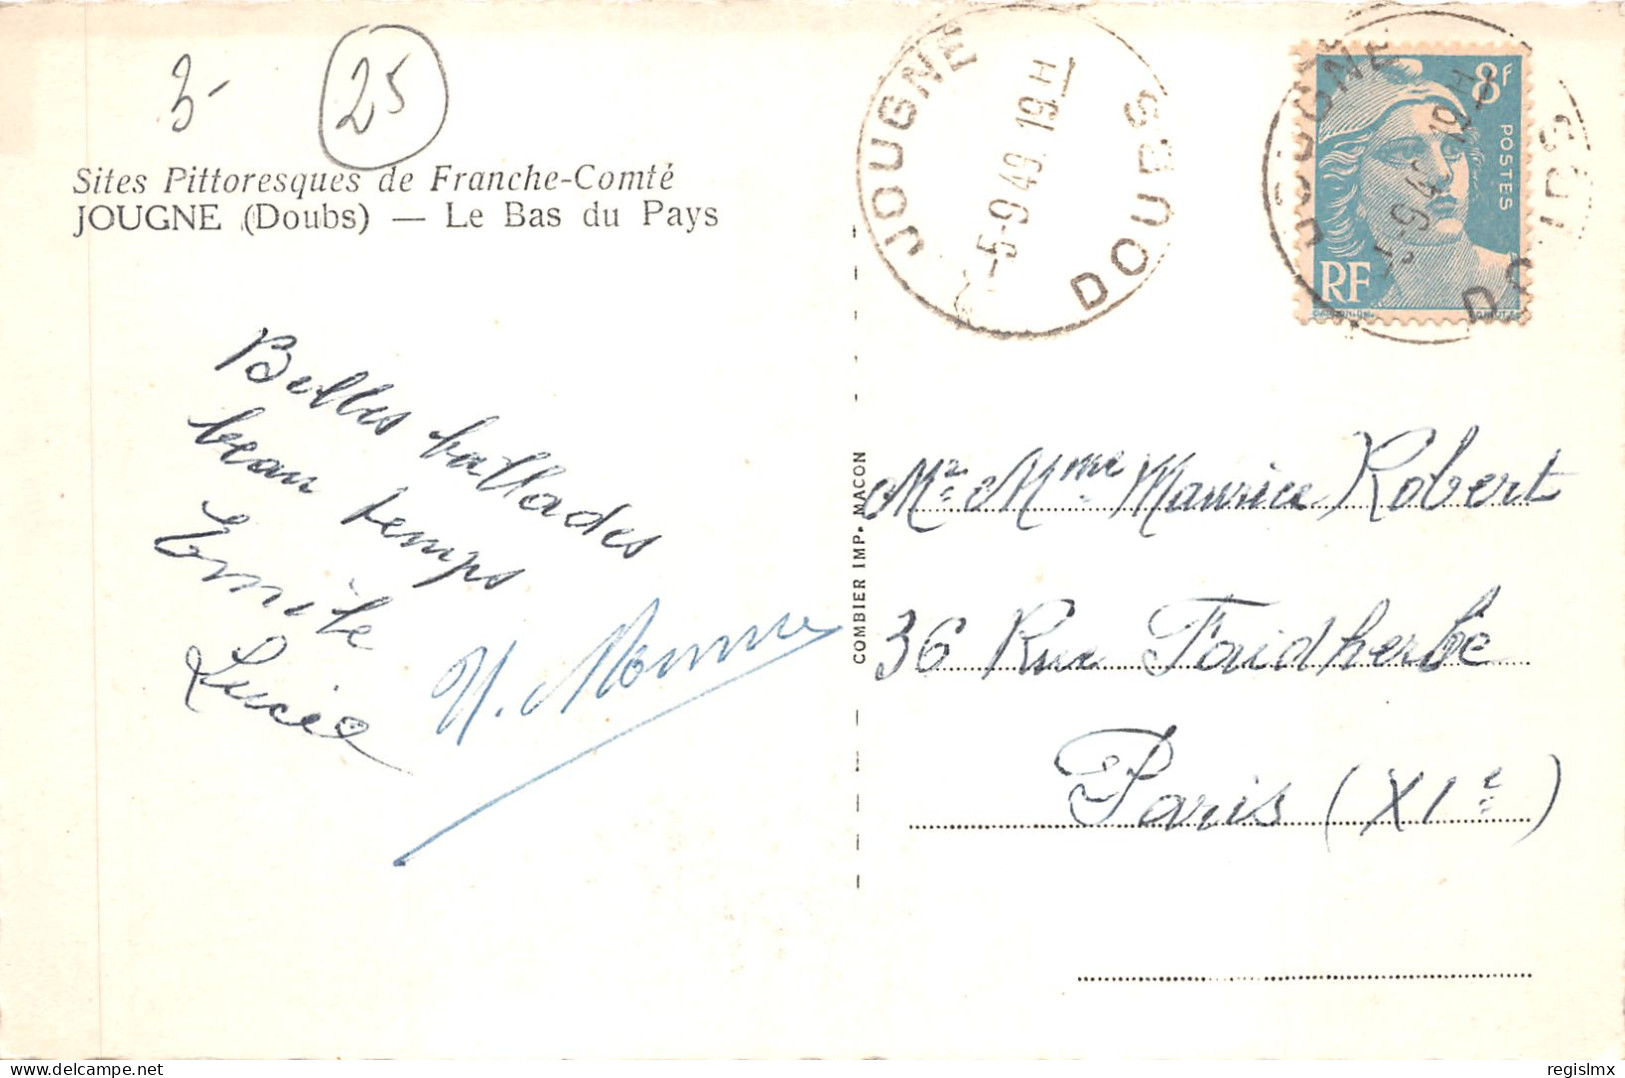 3-
25
Sites Pittoresques de Franche-Comté
JOUGNE (Doubs) — Le Bas du Pays
Belles ballades
beau temps
Emile
Lucie
COMBIER IMP. MACON
JOUGNE
-5-9 49 19 H
DOUBS
JOUGNE
DOUBS
8F
POSTES
RF
Mr & Mme Maurice Robert
36 Rue Faidherbe
Paris (XIe)
regislmx